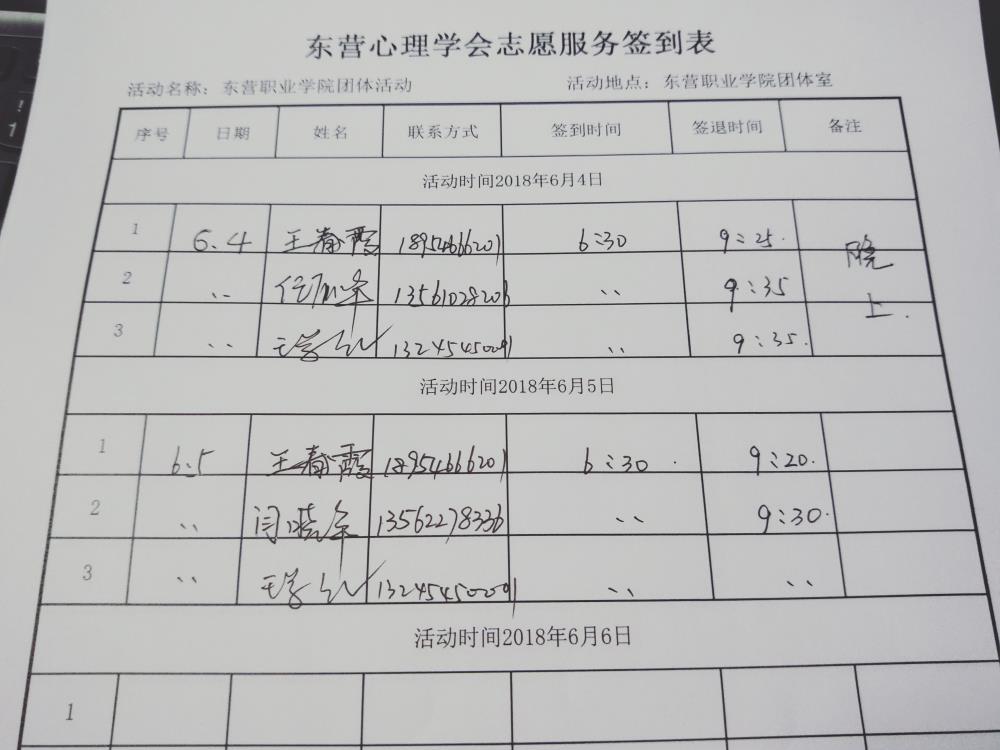 东营心理学会志愿服务签到表
活动名称：东营职业学院团体活动 活动地点：东营职业学院团体室
序号 日期 姓名 联系方式 签到时间 签退时间 备注
活动时间2018年6月4日
1 6.4 王春霞 18954666201 6:30 9:25. 晚
2 〃 13561028206 〃 9:35 上.
3 〃 13245450091 〃 9:35.
活动时间2018年6月5日
1 6.5 王春霞 18954666201 6:30 9:20.
2 〃 闫晓军 13562278336 〃 9:30.
3 〃 13245450091 〃 〃
活动时间2018年6月6日
1